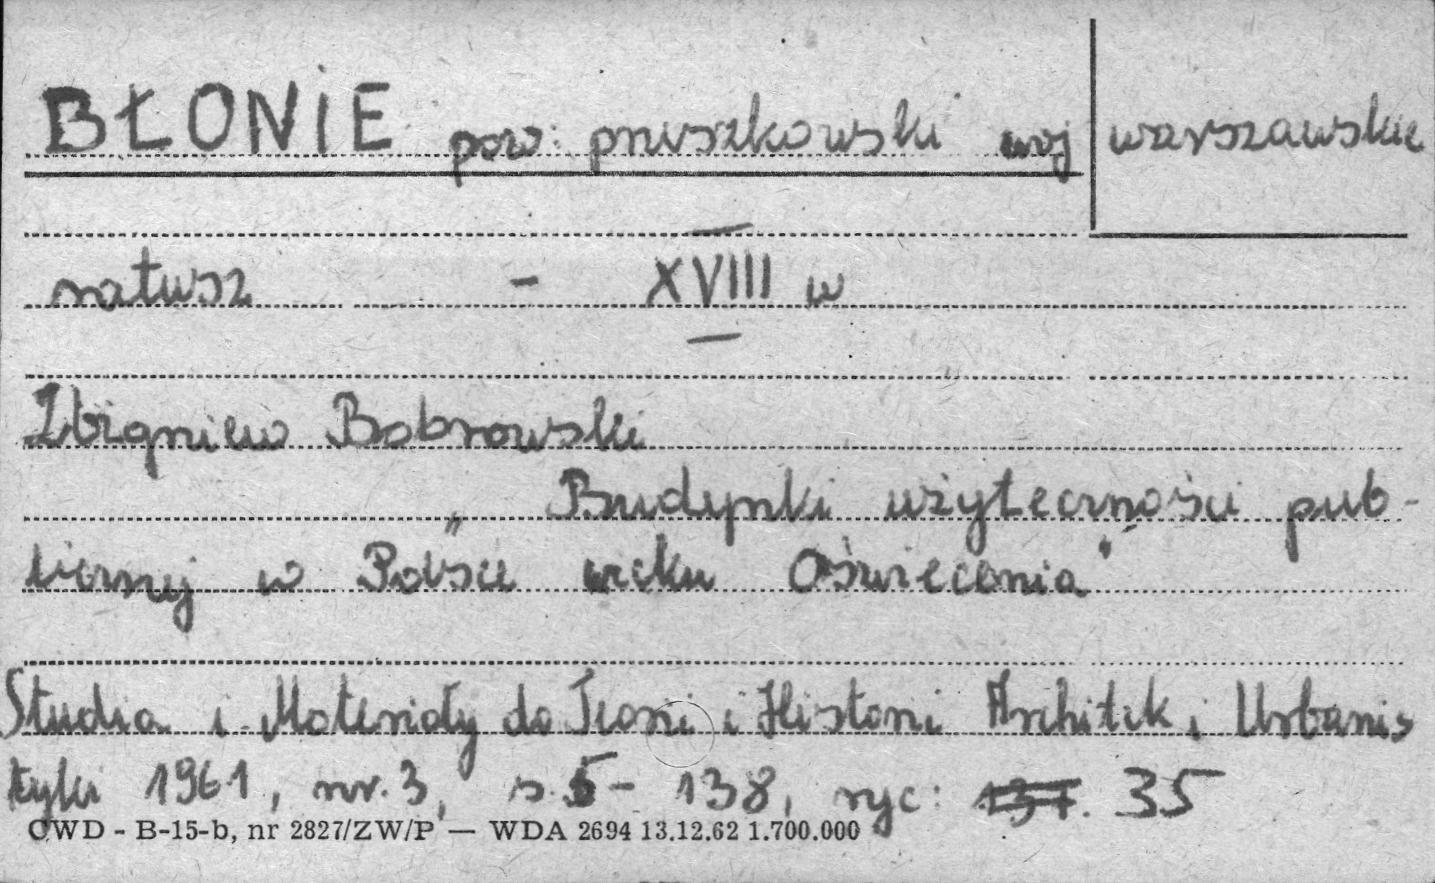 BŁONIE pow: pruszkowski woj warszawskie
ratusz - XVIII w
Zbigniew Bobrowski
„ Budynki użyteczności pub-
licznej w Polsce wieku Oświecenia"
Studia i Materiały do Teorii i Historii Architek. i Urbanis
tyki 1961, nr. 3, s. 5- 138, ryc: 137. 35
CWD - B-15-b, nr 2827/ZW/P — WDA 2694 13.12.62 1.700.000